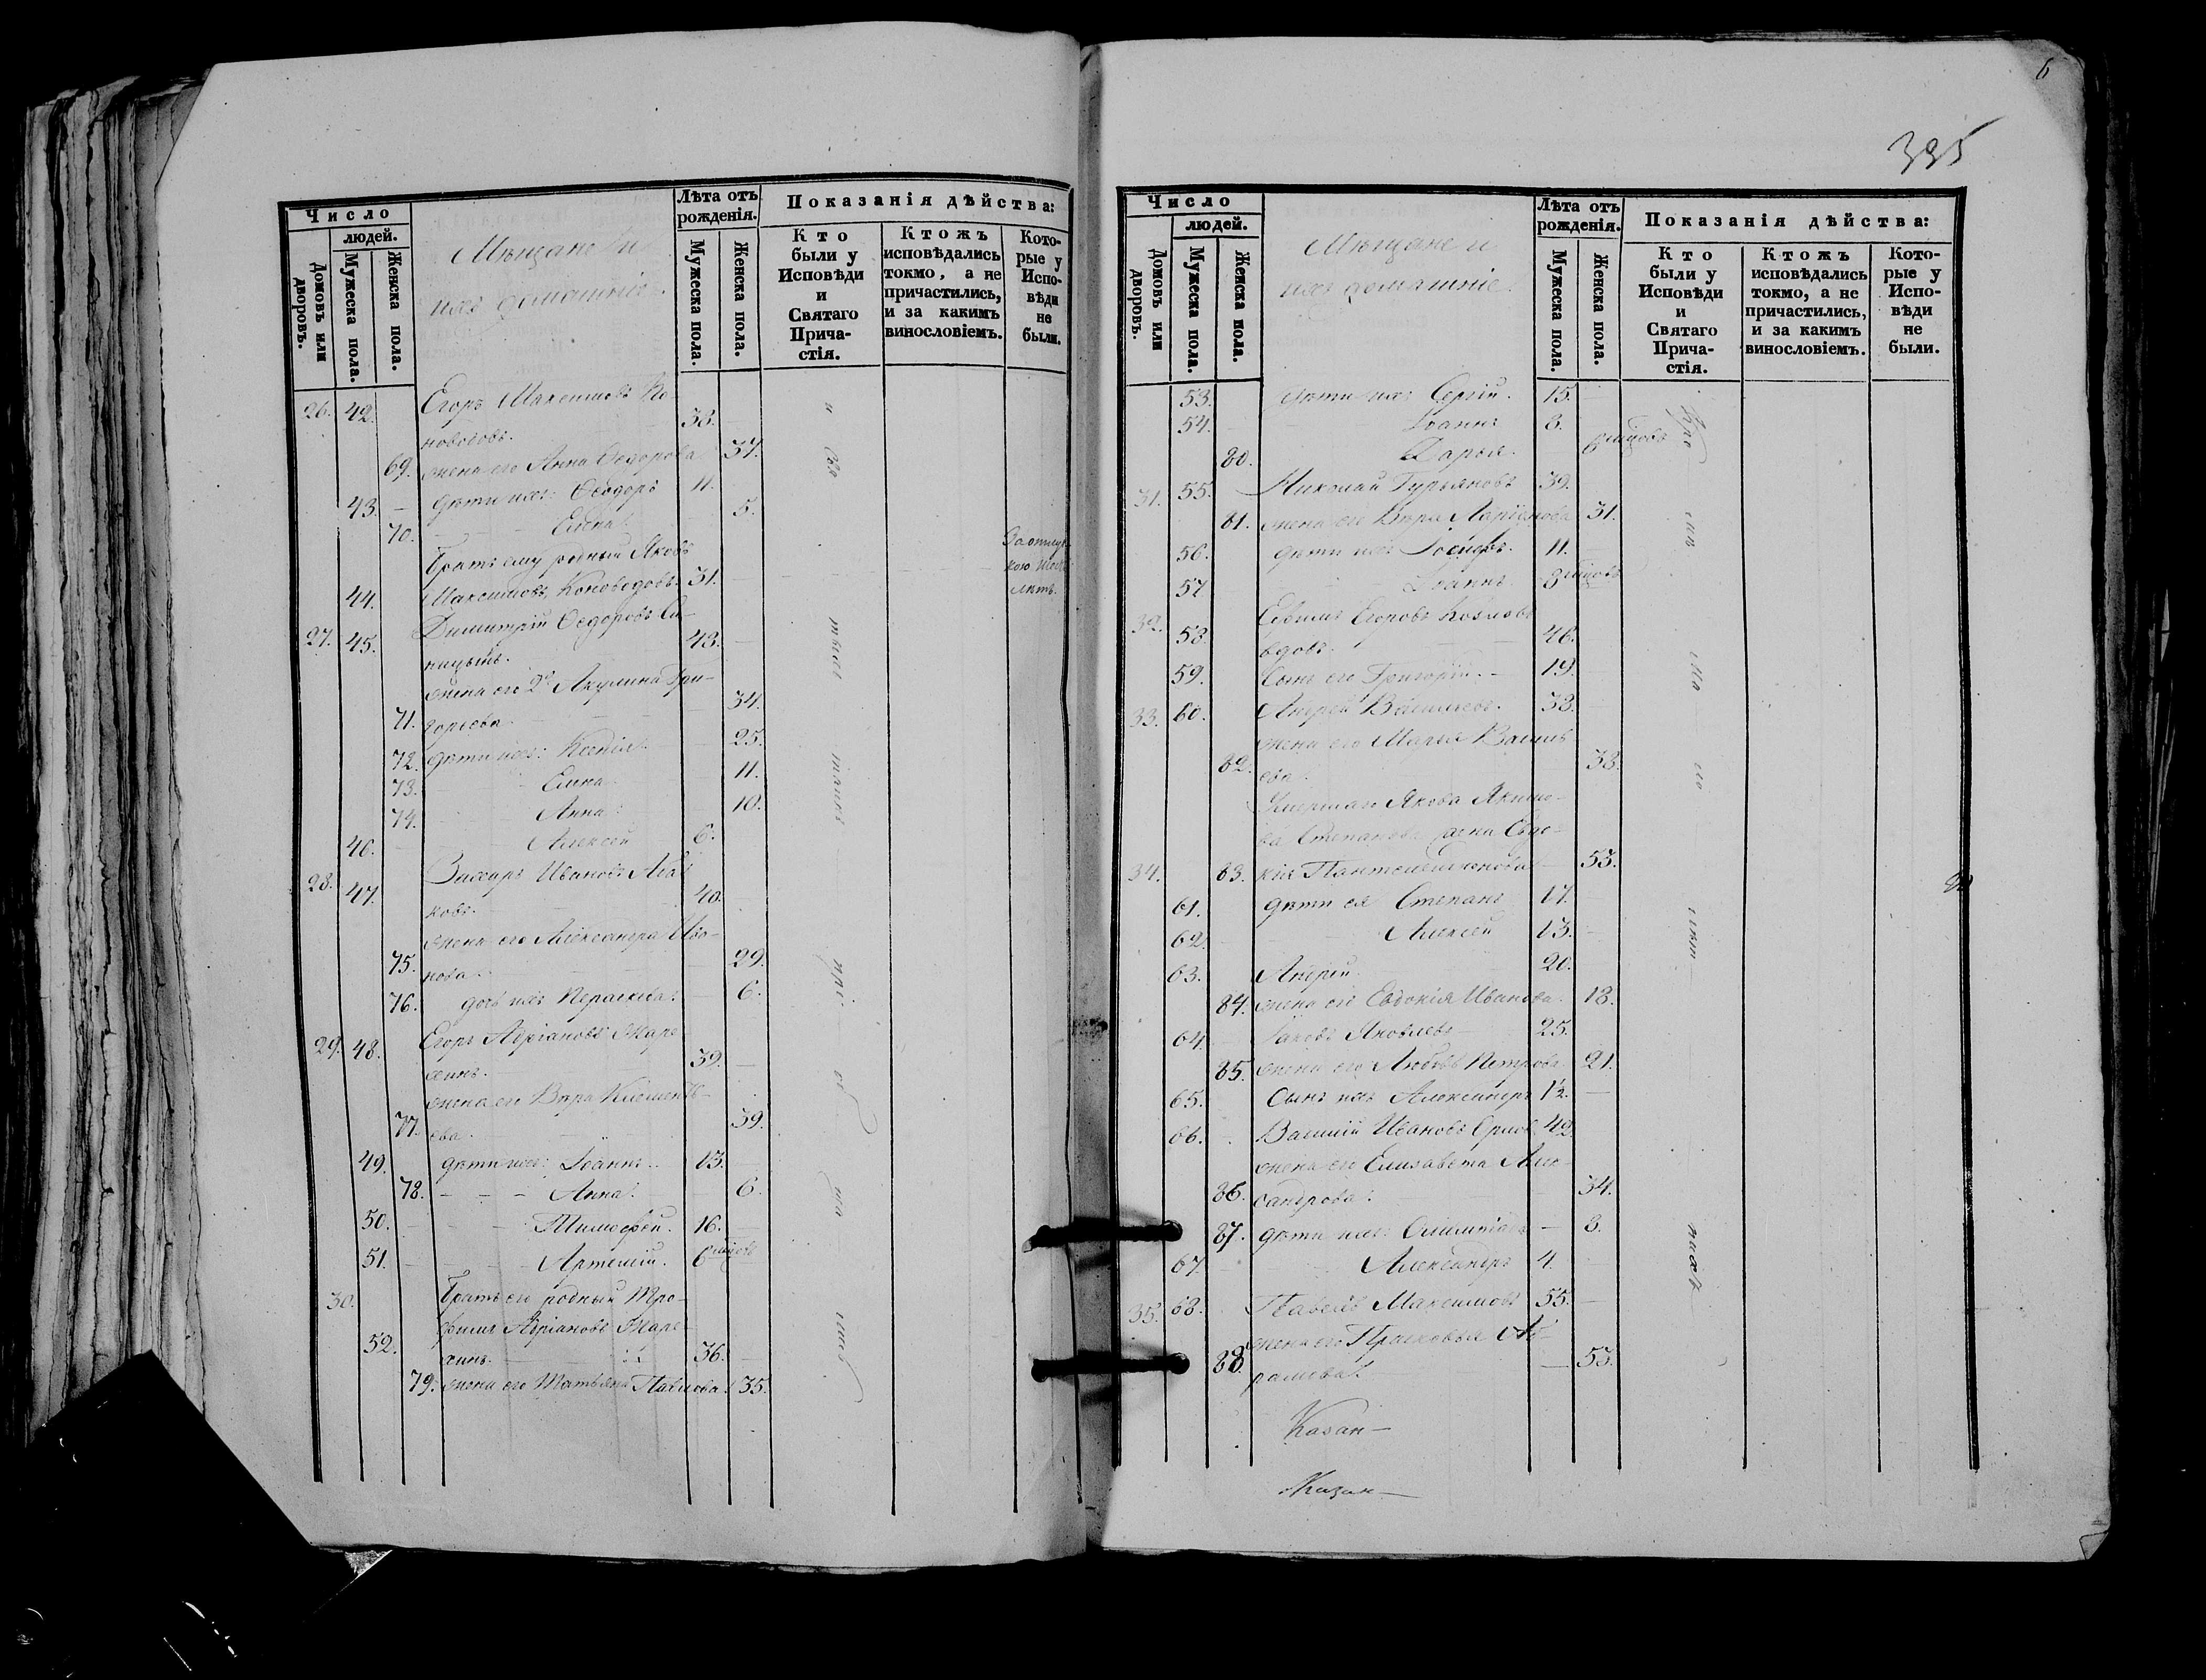 Число
людей.
Домовъ или дворовъ.
Мужеска пола.
Женска пола.
Мѣщане и
ихъ домашніе.
Лѣта отъ рожденія.
Мужеска пола.
Женска пола.
Показанія дѣйства:
Кто были у Исповѣди и Святаго Причастія.
Ктожъ исповѣдались токмо, а не причастились, и за какимъ винословіемъ.
Которые у Исповѣди не были.
26. 42. Егоръ Максимовъ Ко-
новодовъ. 38.
69. жена его Анна Ѳедорова 37.
43. дѣти ихъ: Ѳеодоръ 11.
70. Елена. 5.
Братъ ему родный Яковъ
44. Максимовъ Коноводовъ. 31.
27. 45. Димитрій Ѳедоровъ Си-
ницынъ. 43.
жена его 2я Акулина Гри-
71. горьева 34.
72. дѣти ихъ: Ксенія 25.
73. Елена 11.
74. Анна 10.
46. Алексей 6.
28. 47. Ивановъ
ковъ. 40.
жена его Александра Ива-
75. нова. 29.
76. дочь ихъ Параскева. 6.
29. 48. Егоръ Адріановъ Жаре-
хинъ. 39.
жена его Вѣра Клементь-
77. ева. 39.
49. дѣти ихъ: Іоаннъ. 13.
78. Анна. 6.
50. Тимофей. 16.
51. Артемій. 6 мѣсцовъ
30. Братъ его родный Тро-
фимъ Адріановъ Жаре-
52. хинъ. 36.
79. жена его Татьяна Павлова. 35.
6
395
Число
людей.
Домовъ или дворовъ.
Мужеска пола.
Женска пола.
Мѣщане и
ихъ домашніе.
Лѣта отъ рожденія.
Мужеска пола.
Женска пола.
Показанія дѣйства:
Кто были у Исповѣди и Святаго Причастія.
Ктожъ исповѣдались токмо, а не причастились, и за какимъ винословіемъ.
Которые у Исповѣди не были.
53. дѣти ихъ: Сергій. 15.
54. Іоаннъ 3.
80. Дарья. 6 мѣсцовъ
31. 55. Николай Гурьяновъ 39.
81. жена его Вѣра Ларіонова 31.
56. дѣти ихъ: 11.
57 Іоаннъ. 3 мѣсцовъ
32. Ефимъ Егоровъ Козловъ
58. вдовъ. 46.
59. Сынъ его Григорій. 19.
33. 60. Андрей Васильевъ. 33.
жена его Марья Василь-
82. ева. 33.
Умершаго Якова Якимо-
ва Степанова жена Евдо-
34. 83. кія Пантелеймонова 53.
61. дѣти ея Степанъ 17.
62. Алексей 13.
63. Андрей 20.
84. жена его Евдокія Иванова. 18.
64. Яковъ Яковлевъ 25.
85. жена его Любовь Петрова 21.
65. Сынъ ихъ Александръ 1½.
66. Василій Ивановъ Орловъ 42.
жена его Елизавета Алек-
86. сандрова. 34.
87. дѣти ихъ: Олимпіада 3.
67. Александръ 4.
35. 68. Павелъ Максимовъ 55.
жена его Прасковья Аб-
88. рамова. 53.
Казан-